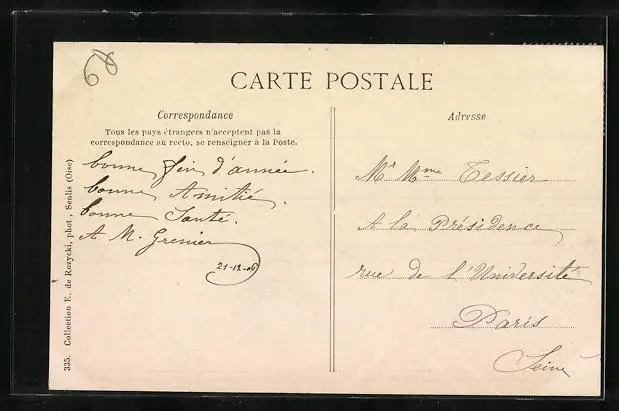 60
CARTE POSTALE
Correspondance
Tous les pays étrangers n'acceptent pas la
correspondance au recto, se renseigner à la Poste.
bonne fin d'année.
bonne Amitié,
bonne Santé.
A M. Grenier
21-12-06
Adresse
Mr Mme Tessier
A la Présidence
rue de l'Université
Paris
Seine
335. Collection E. de Rozycki, phot., Senlis (Oise)